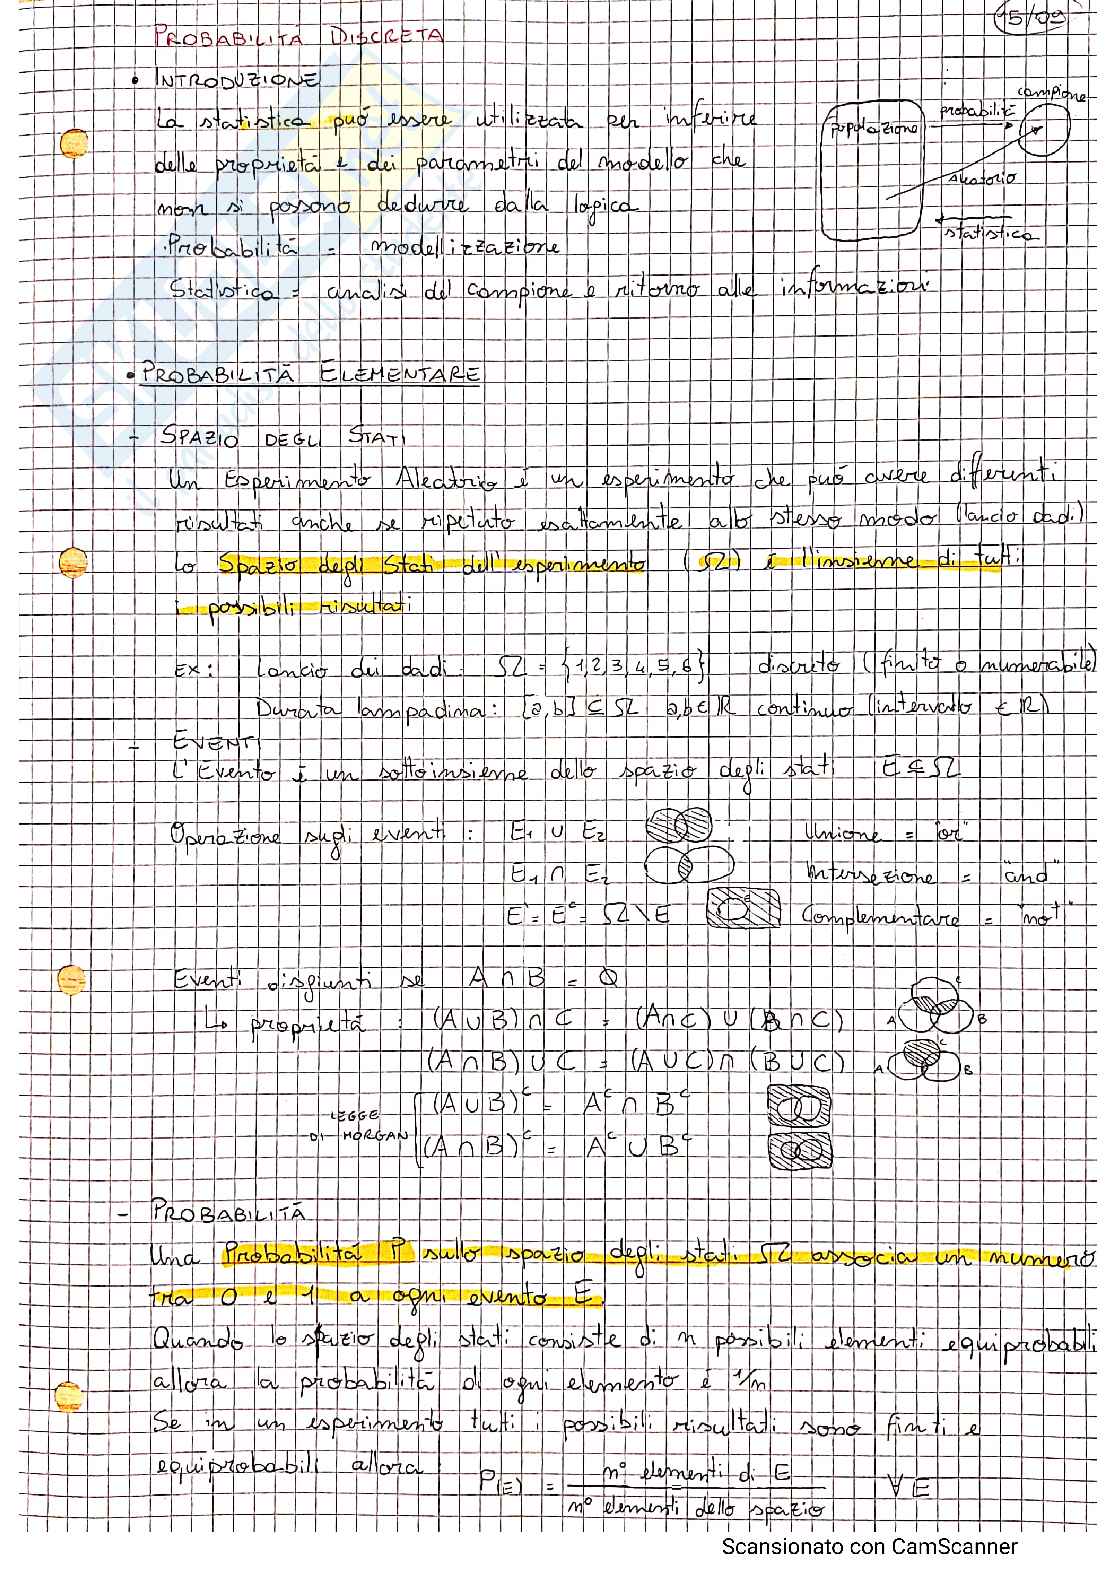 15/09
PROBABILITÀ DISCRETA
• INTRODUZIONE
La statistica può essere utilizzata per inferire
delle proprietà e dei parametri del modello che
non si possono dedurre dalla logica
Probabilità = modellizzazione
Statistica = analisi del campione e ritorno alle informazioni
popolazione
probabilità
campione
aleatorio
statistica
• PROBABILITÀ ELEMENTARE
- SPAZIO DEGLI STATI
Un Esperimento Aleatorio è un esperimento che può avere differenti
risultati anche se ripetuto esattamente allo stesso modo (lancio dadi)
Lo Spazio degli Stati dell'esperimento (Ω) è l'insieme di tutti
i possibili risultati
EX: Lancio dei dadi: Ω = {1,2,3,4,5,6} discreto (finito o numerabile)
Durata lampadina: [a,b] ⊆ Ω a,b ∈ ℝ continuo (intervallo ∈ ℝ)
- EVENTI
L'Evento è un sottoinsieme dello spazio degli stati E ⊆ Ω
Operazione sugli eventi: E₁ ∪ E₂ Unione = "or"
E₁ ∩ E₂ Intersezione = "and"
E' = Eᶜ = Ω \ E E Complementare = "not"
Eventi disgiunti se A ∩ B = Ø
↳ proprietà: (A ∪ B) ∩ C = (A ∩ C) ∪ (B ∩ C) A B C
(A ∩ B) ∪ C = (A ∪ C) ∩ (B ∪ C) A B C
LEGGE DI MORGAN
(A ∪ B)ᶜ = Aᶜ ∩ Bᶜ
(A ∩ B)ᶜ = Aᶜ ∪ Bᶜ
- PROBABILITÀ
Una Probabilità P sullo spazio degli stati Ω associa un numero
tra 0 e 1 a ogni evento E
Quando lo spazio degli stati consiste di n possibili elementi equiprobabili
allora la probabilità di ogni elemento è 1/n
Se in un esperimento tutti i possibili risultati sono finiti e
equiprobabili allora P(E) = n° elementi di E / n° elementi dello spazio ∀ E
Scansionato con CamScanner